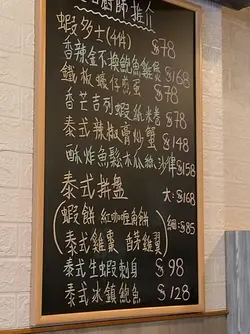 廚師推介
蝦多士(4件) $78
香辣金不換鮑魚雞煲 $168
鐵板蠔仔煎蛋 $78
香芒吉列蝦紙米卷 $78
泰式辣椒膏炒蟹 $148
酥炸魚鬆木瓜絲沙律 $158
泰式拼盤 大:$168
(蝦餅 紅咖喱角餅 細:$85
泰式雞棗 香茅雞翼)
泰式生蝦刺身 $98
泰式冰鎮鮑魚 $128